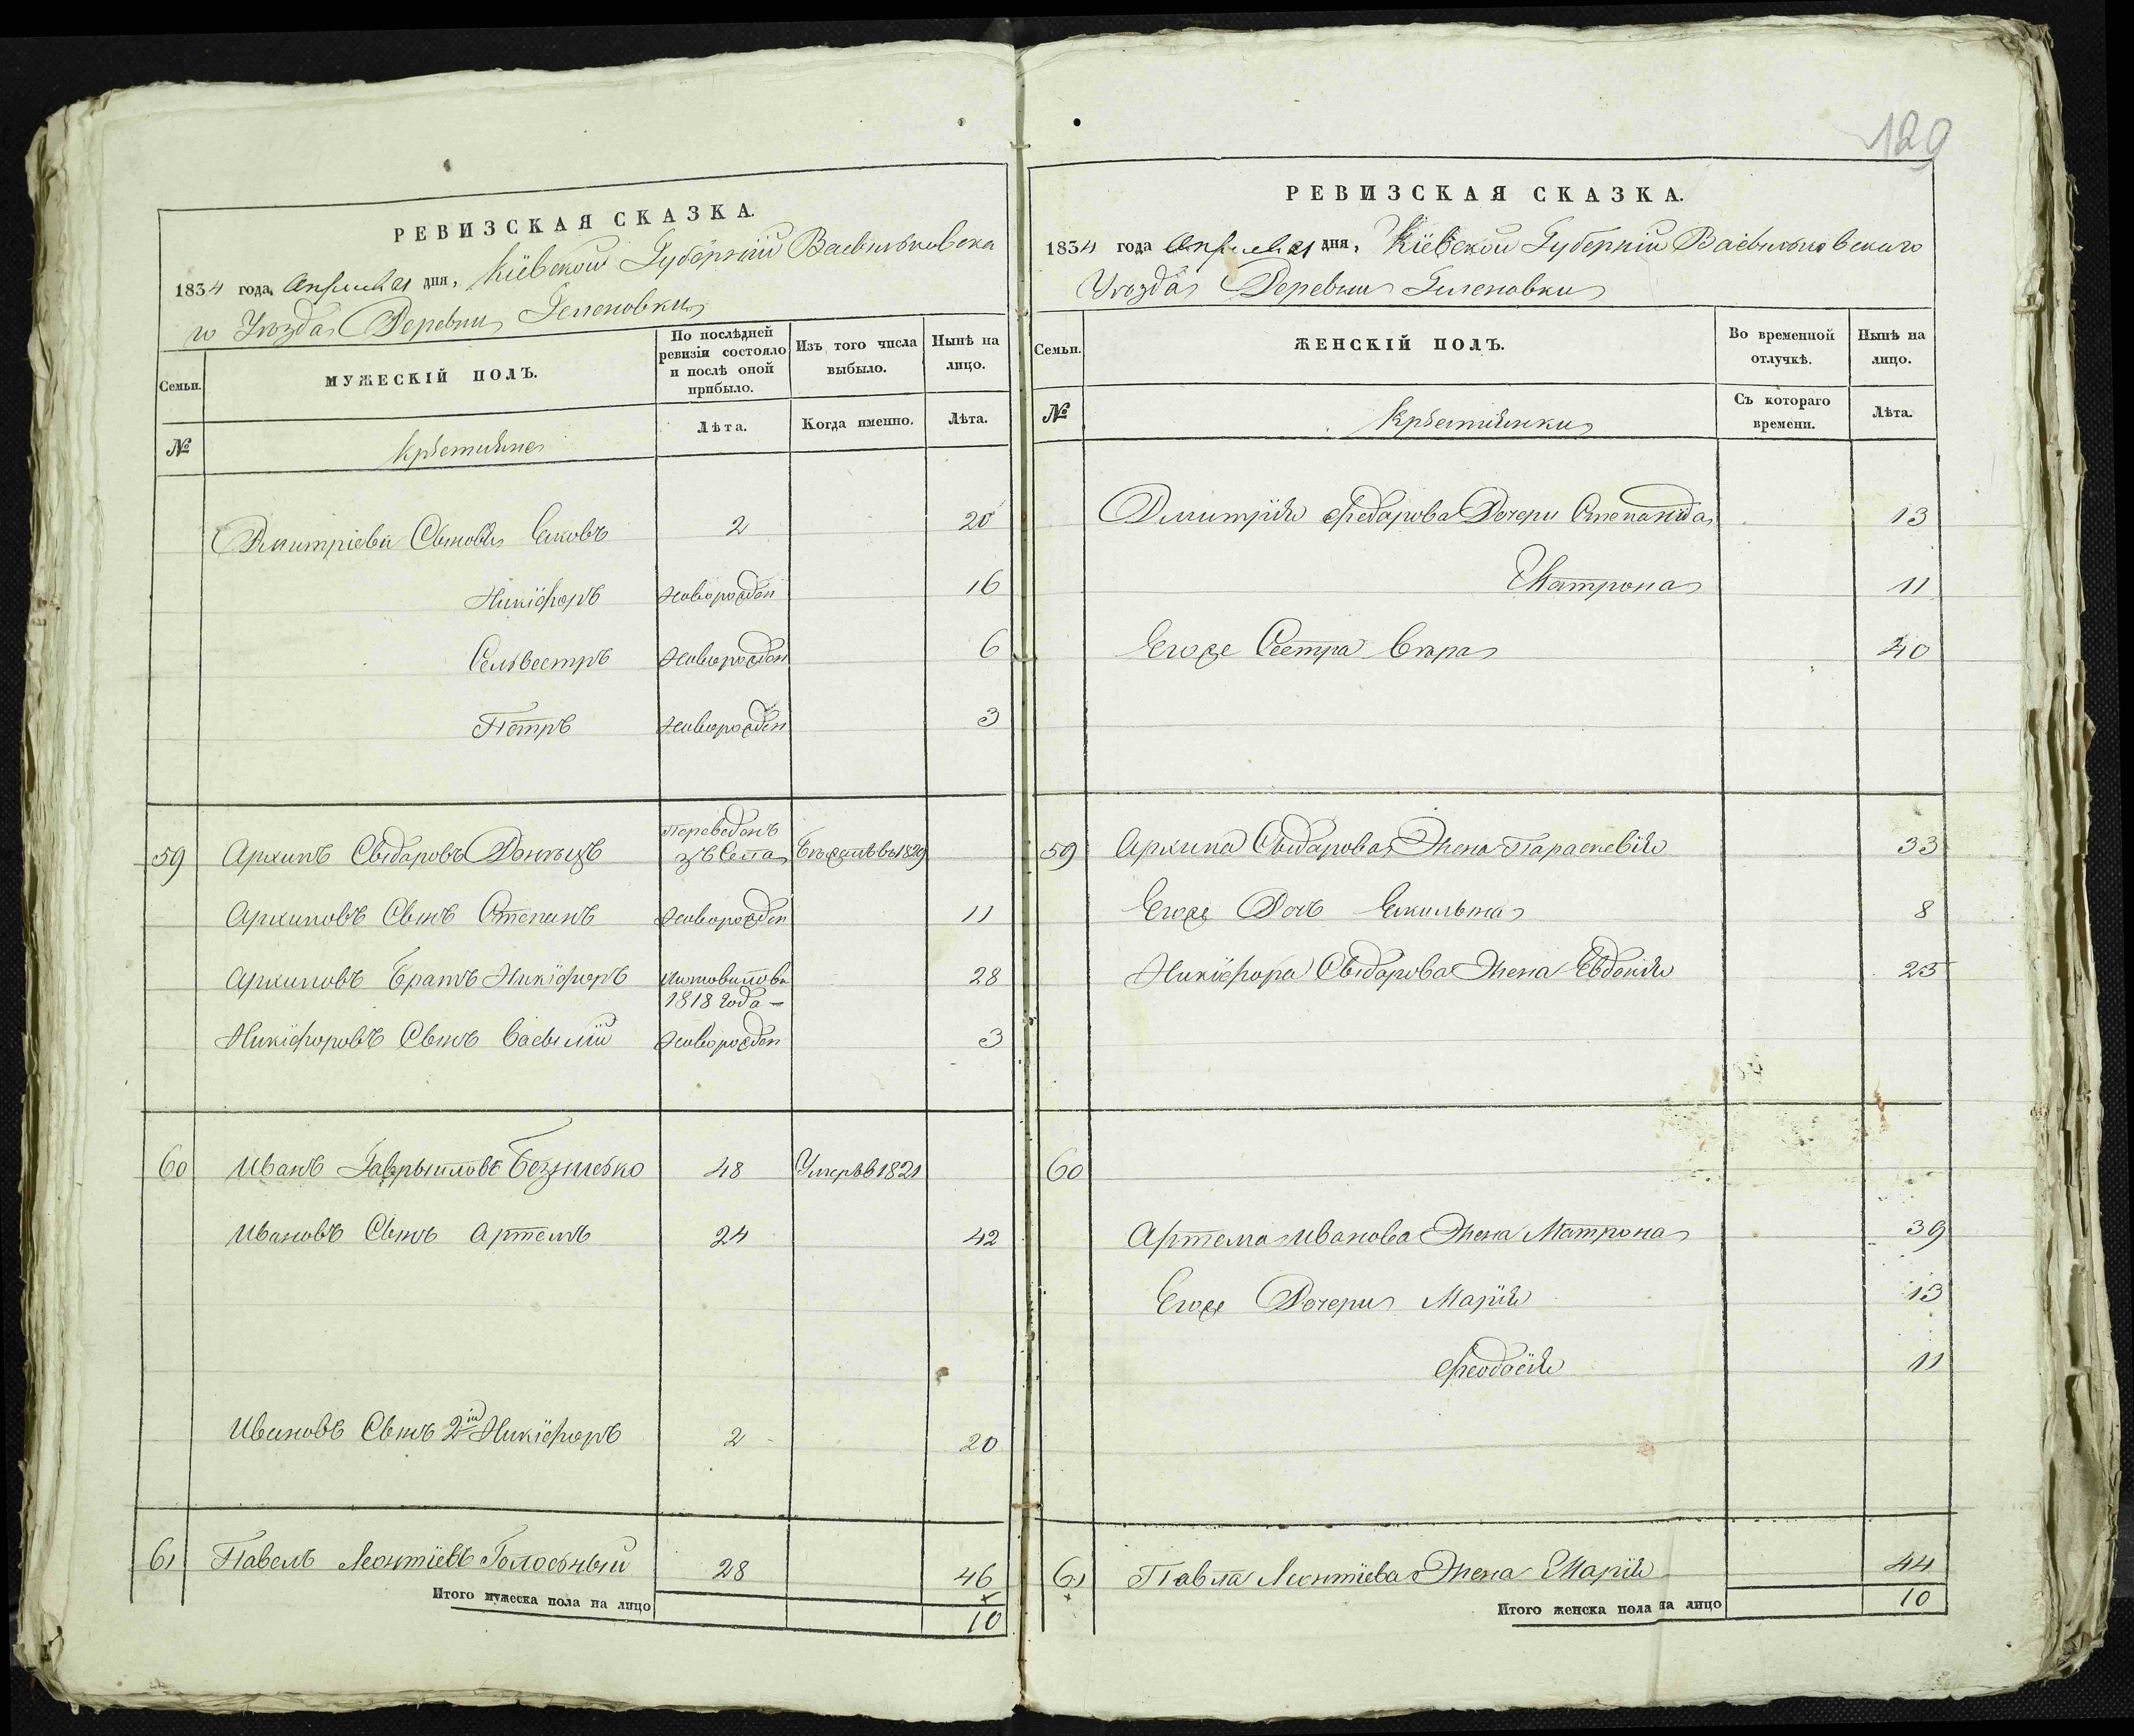 120
РЕВИЗСКАЯ СКАЗКА.
1834 года, Апрыля 21 дня, Кіевской Губерніи Васыльковска
го Уезда Деревни Геленовки
Семьи.
МУЖЕСКІЙ ПОЛЪ.
По послѣдней ревизіи состояло и послѣ оной прибыло.
Изъ того числа выбыло.
Нынѣ на лицо.
№
Крестьяне
Лѣта.
Когда именно.
Лѣта.
Дмитріевы Сыновья Яковъ 2 20
Никіфоръ новорожден 16
Сельвестръ новорожден 6
Петръ новорожден 3
59 Архипъ Свидаровъ Переведенъ зъ Села Бежалъ въ 1829
Архиповъ Сынъ Степанъ новорожден 11
Архиповъ Братъ Никіфоръ 1818 года 28
Никіфоровъ Сынъ Васылій новорожден 3
60 Иванъ Гаврыиловъ 48 Умеръ в 1821
Ивановъ Сынъ Артемъ 24 42
Ивановъ Сынъ 2й Никіфоръ 2 20
61 Павелъ Леонтіевъ Голосный 28 46
Итого мужеска пола на лицо 10
РЕВИЗСКАЯ СКАЗКА.
1834 года Апрыля 21 дня, Кіевской Губерніи Васыльковскаго
Уезда Деревни Геленовки
Семьи.
ЖЕНСКІЙ ПОЛЪ.
Во временной отлучкѣ.
Нынѣ на лицо.
№
Крестьянки
Съ котораго времени.
Лѣта.
Дмитрія Федорова Дочери Степанида 13
Матрона 11
Егоже Сестра Вера 40
59 Архипа Свидарова Жена Параскевія 33
Егоже Дочь Акилына 8
Никіфора Свидарова Жена Евдокія 25
60
Артема Иванова Жена Матрона 39
Егоже Дочери Марія 13
Феодосія 11
61 Павла Леонтіева Жена Марія 44
Итого женска пола на лицо 10